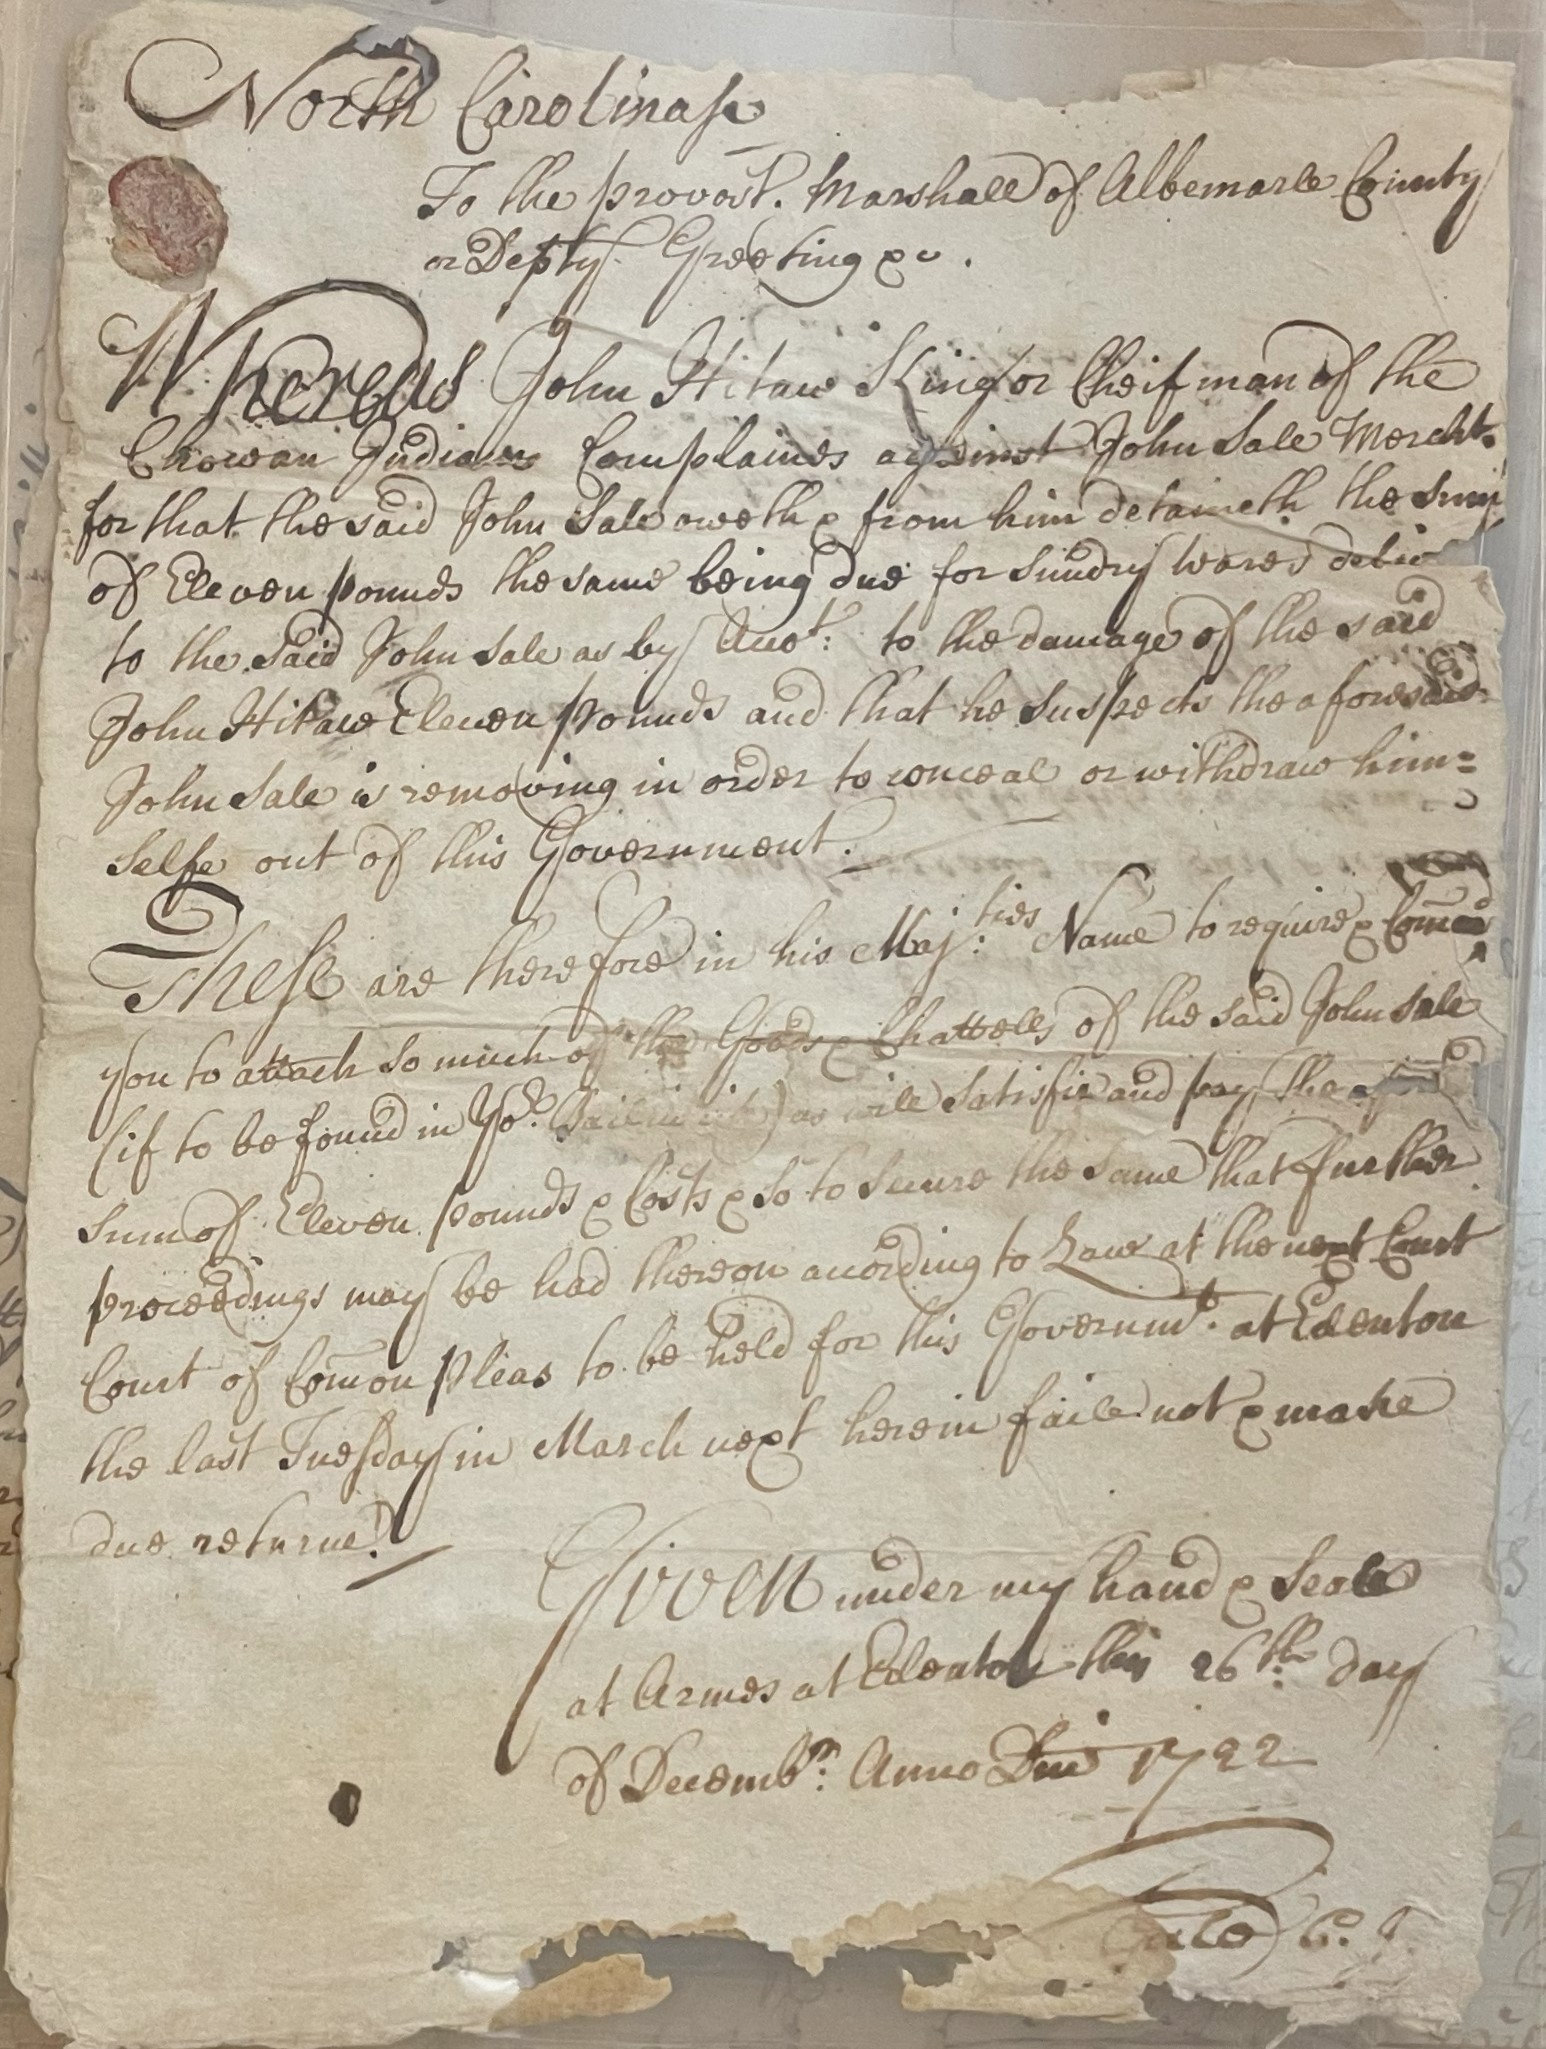 North Carolina ss
To the provost. Marshall of Albemarle County
or Depty. Greeting &c.
Whereas John Hitaw King or Cheif man of the
Chowan Indians Complaines against John Sale Mercht.
for that the said John Sale oweth & from him detaineth the Sum
of Eleven pounds the same being due for Sundry wares deliv
to the said John Sale as by Acot: to the damage of the said
John Hitaw Eleven pounds and that he Suspects the aforesaid
John Sale is removing in order to conceal or withdraw him=
Selfe out of this Government.
These are therefore in his Maj:ties Name to require & Comand
you to attach So much of the Goods & Chattells of the said John Sale
(if to be found in Yor. Bailiwick) as will Satisfie and pay the
Sum of Eleven pounds & Costs & So to Secure the Same that further
proceedings may be had thereon according to Law at the next Court
Court of Comon Pleas to be held for this Governmt. at Edenton
the last Tuesday in March next herein faile not & make
due returne.
Given under my hand & Seale
at Armes at Edenton this 26th: day
of Decembr: Anno Dni 1722
Gale C. J.